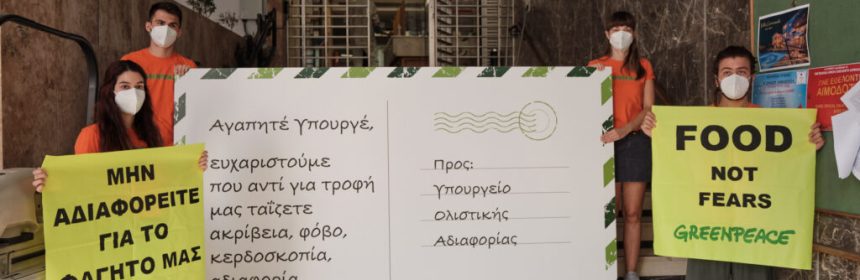 ΜΗΝ
ΑΔΙΑΦΟΡΕΙΤΕ
ΓΙΑ ΤΟ
ΦΑΓΗΤΟ ΜΑΣ
Αγαπητέ Υπουργέ,
ευχαριστούμε
που αντί για τροφή
μας ταΐζετε
ακρίβεια, φόβο,
κερδοσκοπία,
αδιαφορία
Προς:
Υπουργείο
Ολιστικής
Αδιαφορίας
FOOD
NOT
FEARS
GREENPEACE